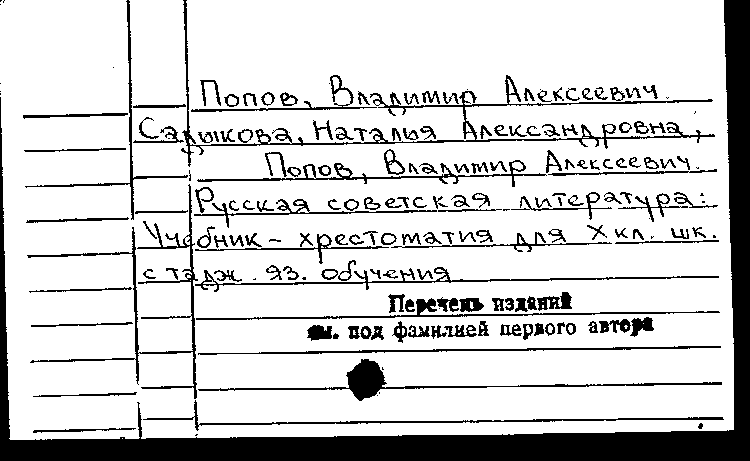 Попов, Владимир Алексеевич.
Садыкова, Наталья Александровна,
Попов, Владимир Алексеевич.
Русская советская литература:
Учебник – хрестоматия для X кл. шк.
с тадж. яз. обучения
Перечень изданий
см. под фамилией первого автора